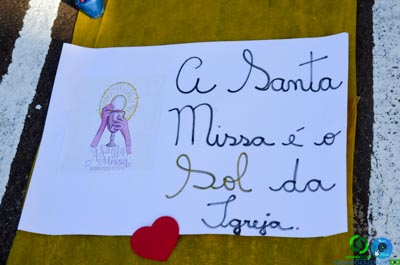 A Santa
Missa é o
Sol da
Igreja.
A Santa
Missa